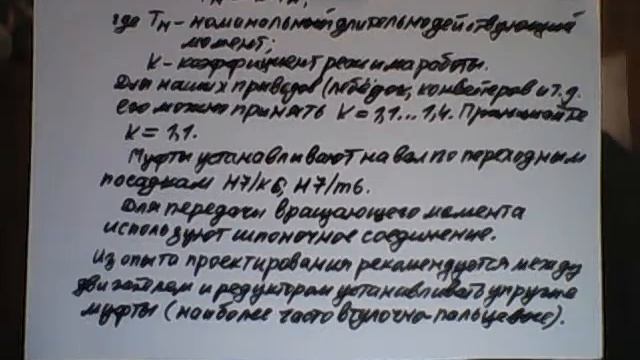 где Tн - номинальный длительнодействующий
момент;
К - коэффициент режима работы.
Для наших приводов (лебёдок, конвейеров и т.д.
его можно принять К = 1,1...1,4. Принимайте
К = 1,1.
Муфты устанавливают на вал по переходным
посадкам H7/k6, H7/m6.
Для передачи вращающего момента
используют шпоночное соединение.
Из опыта проектирования рекомендуется между
двигателем и редуктором устанавливать упругие
муфты (наиболее часто втулочно-пальцевые).